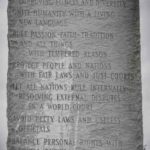 IMPROVING FITNESS AND DIVERSITY
UNITE HUMANITY WITH A LIVING
NEW LANGUAGE
RULE PASSION FAITH TRADITION
AND ALL THINGS
WITH TEMPERED REASON
PROTECT PEOPLE AND NATIONS
WITH FAIR LAWS AND JUST COURTS
LET ALL NATIONS RULE INTERNALLY
RESOLVING EXTERNAL DISPUTES
IN A WORLD COURT
AVOID PETTY LAWS AND USELESS
OFFICIALS
BALANCE PERSONAL RIGHTS WITH